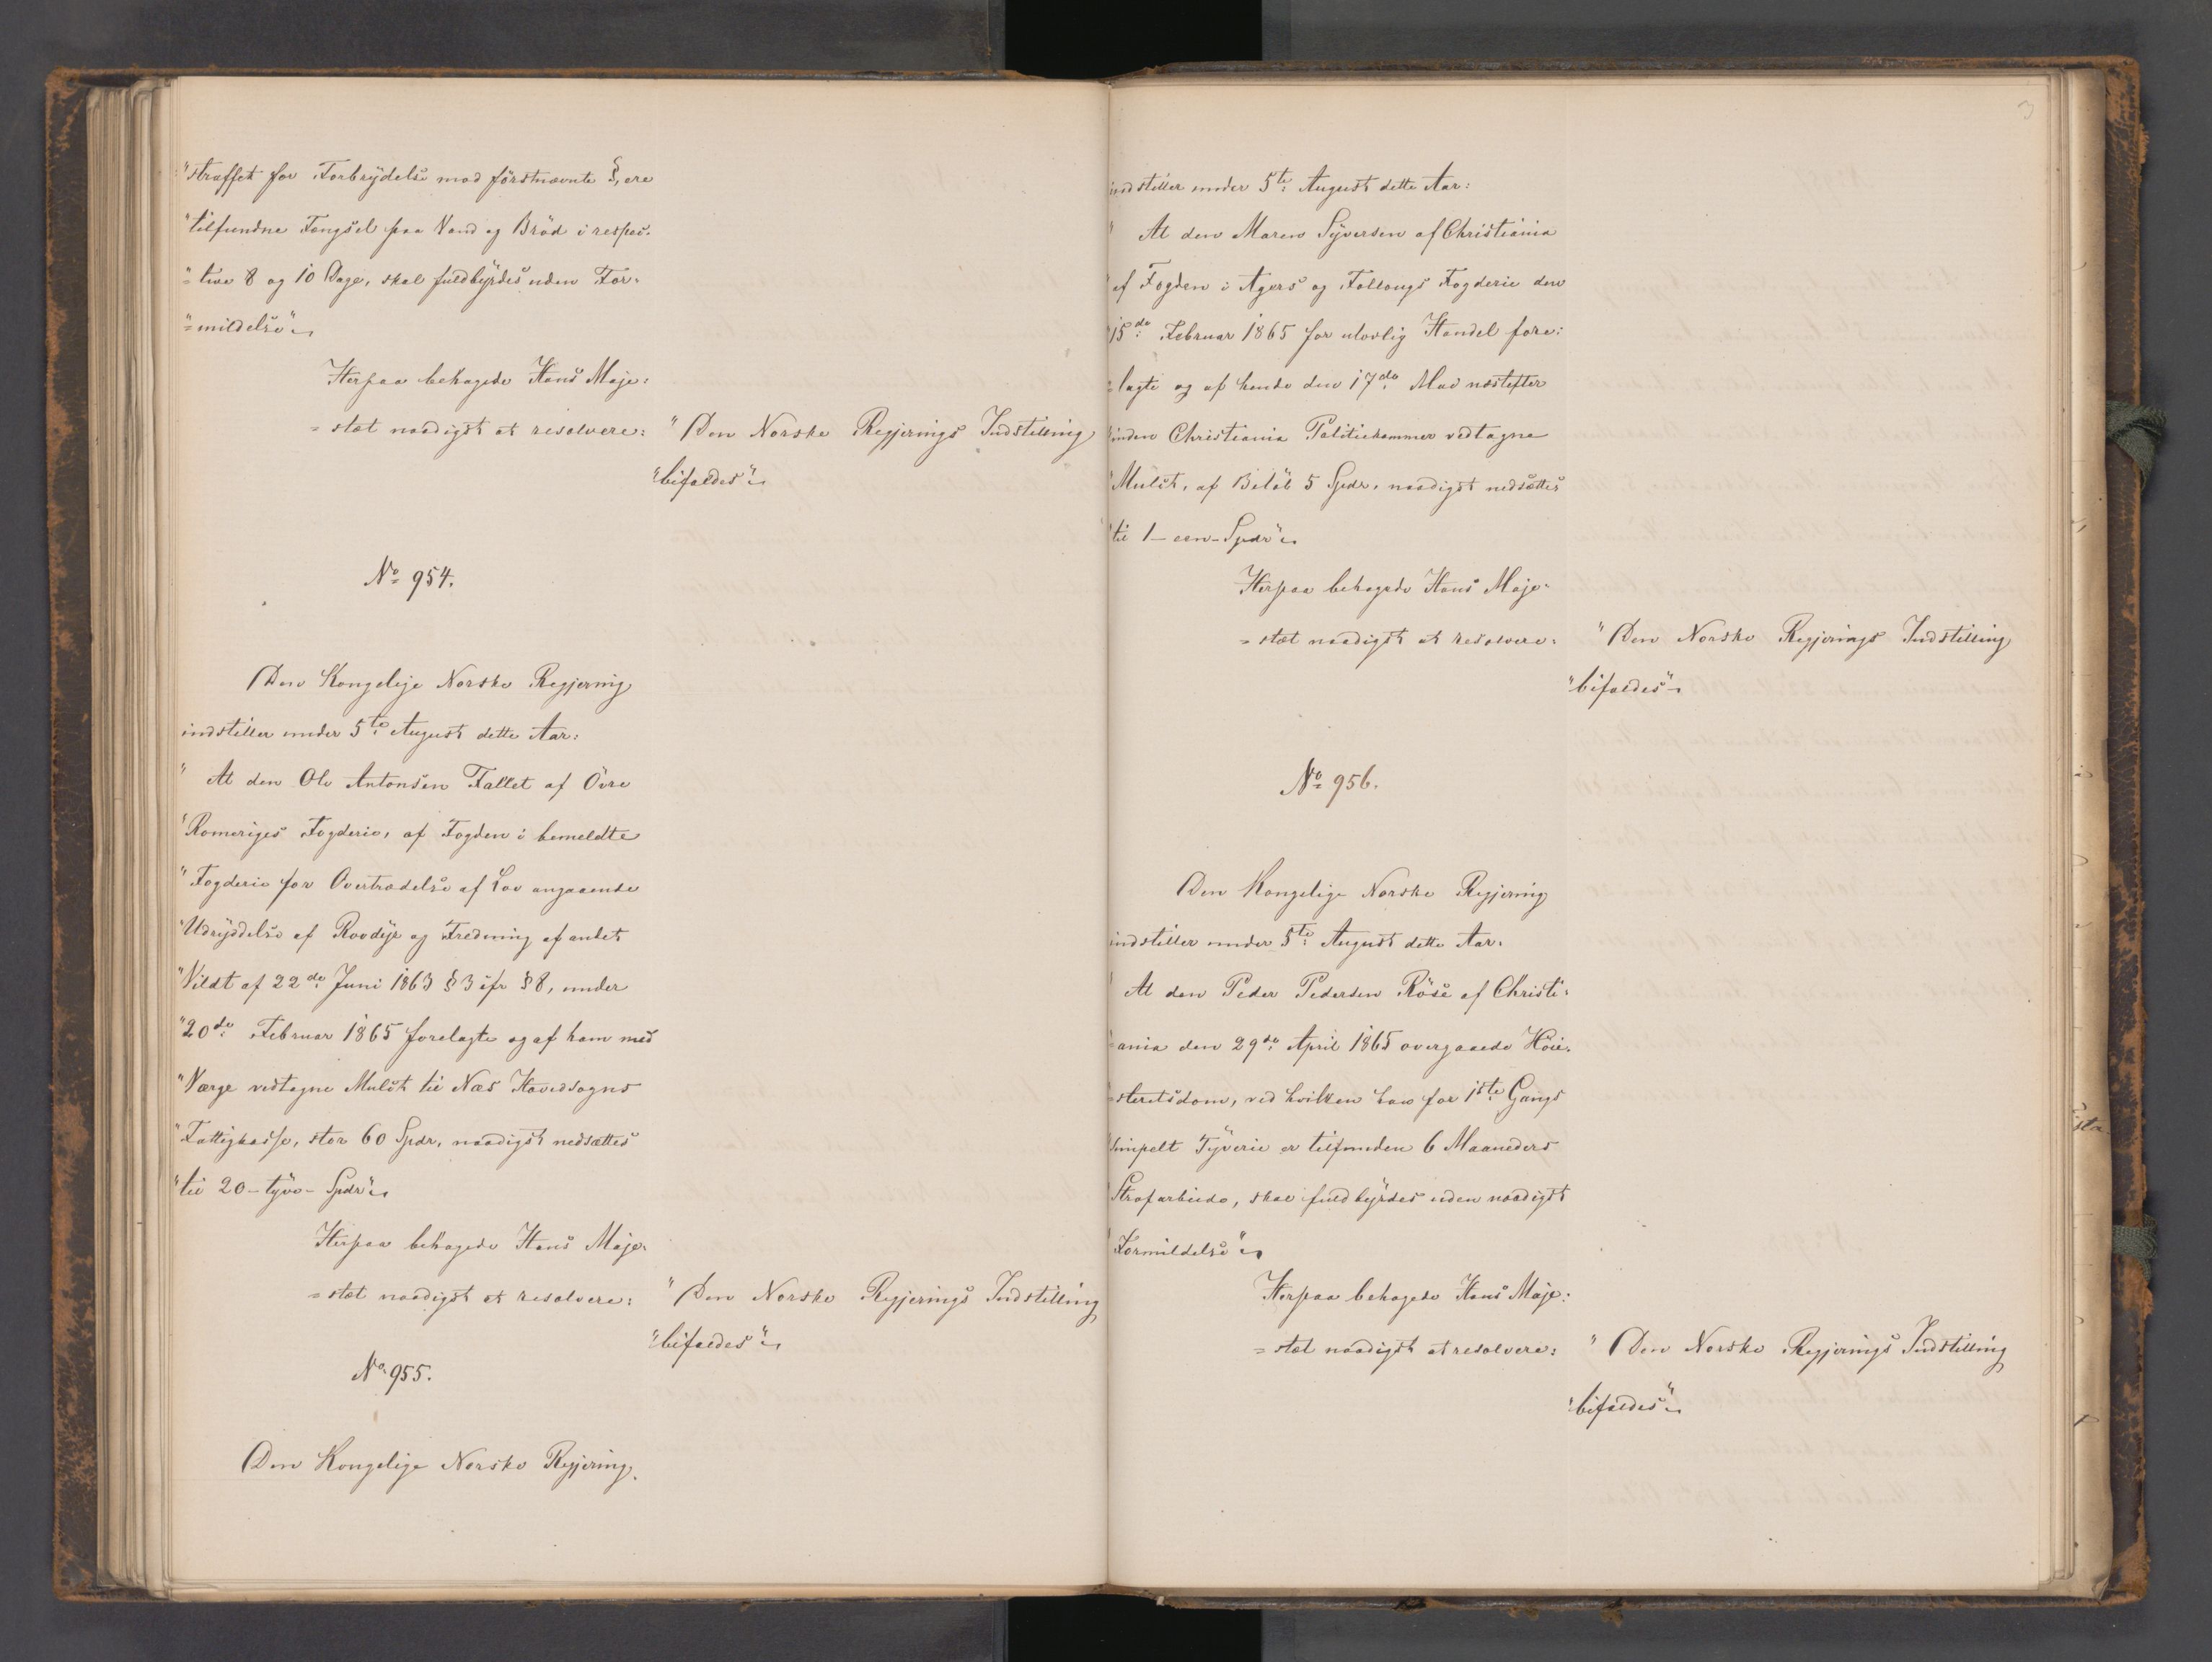 "straffet for Forbrydelse mod förstnævnte §, ere
"tilfundne Fængsel paa Vand og Bröd i respec-
"=tive 8 og 10 Dage, skal fuldbyrdes uden For-
"=mildelse".
Herpaa behagede Hans Maje:
=stæt naadigst at resolvere:
"Den Norske Regjerings Indstilling
"bifaldes".
No 954.
Den Kongelige Norske Regjering
indstiller under 5te August dette Aar:
"At den Ole Antonsen Fallet af Övre
"Romeriges Fogderie, af Fogden i bemeldte
"Fogderie for Overtrædelse af Lov angaaende
"Udryddelse af Rovdyr og Fredning af andet
"Vildt af 22de Juni 1863 § 3 cfr § 8, under
"20de Februar 1865 forelagte og af ham med
"Værge vedtagne Mulct til Næs Hovedsogns
"Fattigkasse, stor 60 Spdr, naadigst nedsættes
"til 20 - tyve - Spdr".
Herpaa behagede Hans Maje-
=stæt naadigst at resolvere:
"Den Norske Regjerings Indstilling
"bifaldes".
No 955.
Den Kongelige Norske Regjering
3
indstiller under 5te August dette Aar:
"At den Maren Syversen af Christiania
"af Fogden i Agers og Follougs Fogderie den
"15de Februar 1865 for ulovlig Handel fore:
"=lagte og af hende den 17de Mai næstefter
"inden Christiania Politiekammer vedtagne
"Mulct, af Belöb 5 Spdr, naadigst nedsættes
"til 1 - een - Spdr".
Herpaa behagede Hans Maje-
=stæt naadigst at resolvere:
"Den Norske Regjerings Indstilling
"bifaldes".
No 956.
Den Kongelige Norske Regjering
indstiller under 5te August dette Aar:
"At den Peder Pedersen Röse af Christi:
"=ania den 29de April 1865 overgaaede Höie-
"=steretsdom, ved hvilken han for 1ste Gangs
"simpelt Tyverie er tilfunden 6 Maaneders
"Strafarbeide, skal fuldbyrdes uden naadigst
"Formildelse".
Herpaa behagede Hans Maje:
=stæt naadigst at resolvere:
"Den Norske Regjerings Indstilling
"bifaldes".